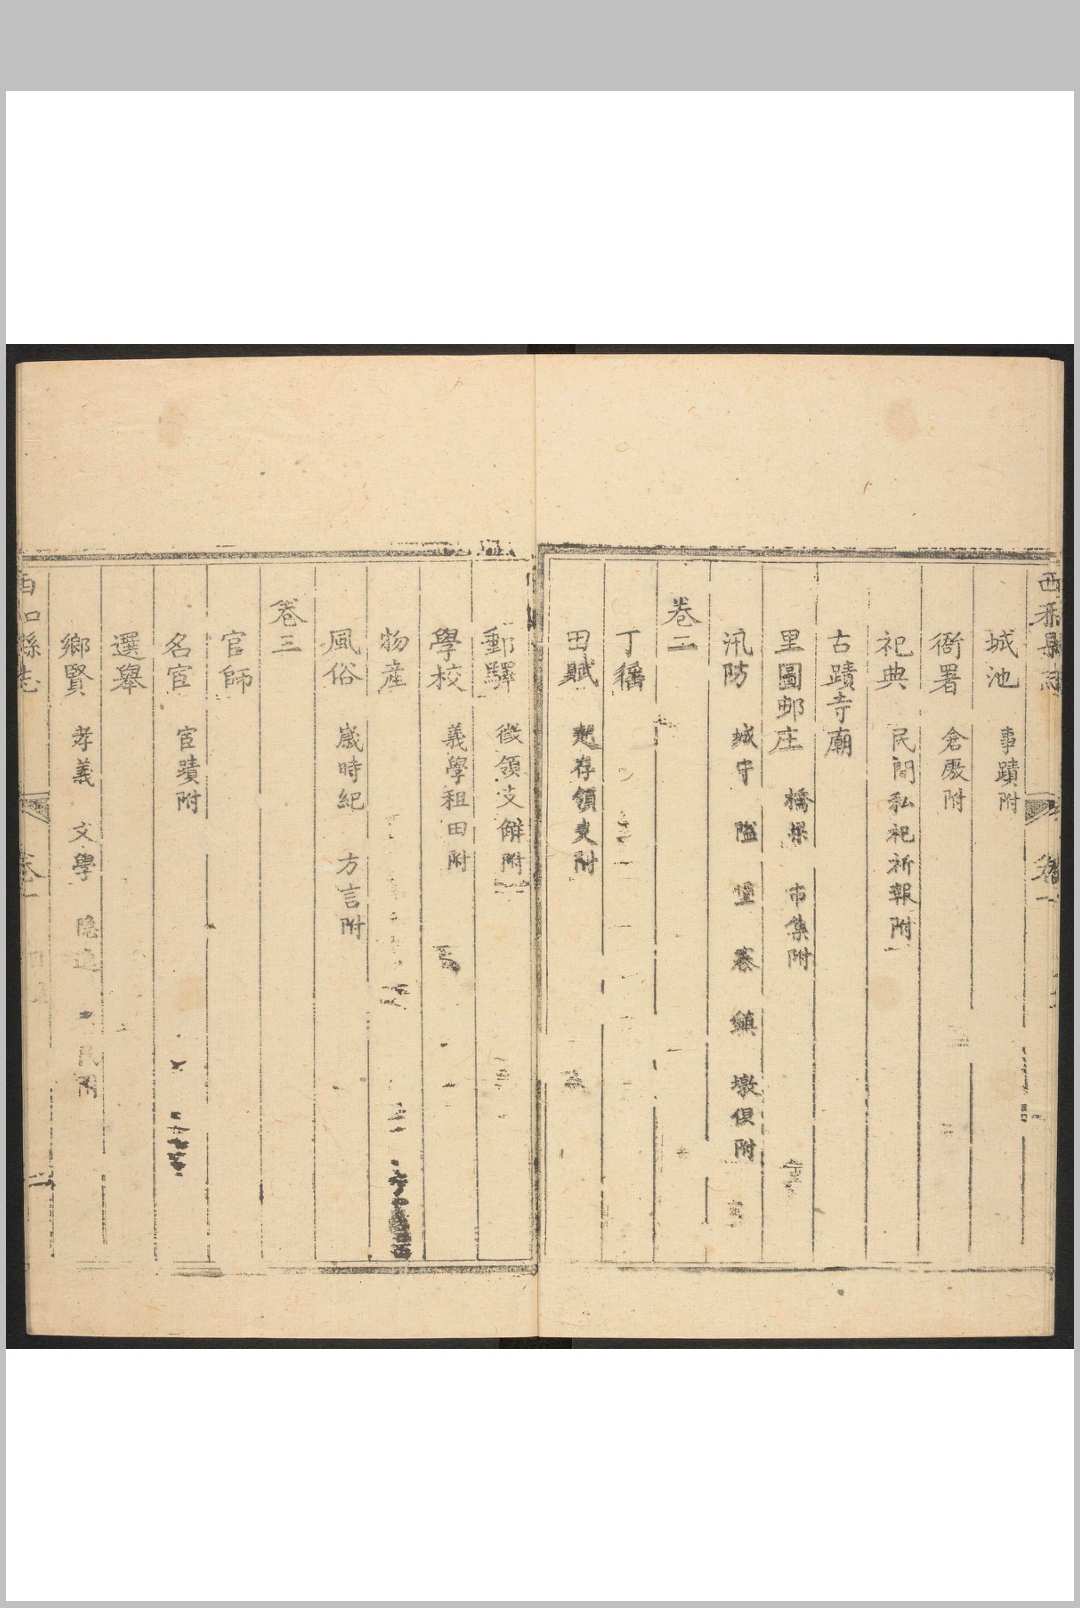 西和縣志 卷一
城池 事蹟附
衙署 倉廒附
祀典 民間私祀祈報附
古蹟寺廟
里圖邨庄 橋梁 市集附
汛防 城守 隘 堡 寨 鎮 墩俱附
卷二
丁徭
田賦 起存領支附
郵驛 徵領支解附
學校 義學租田附
物產
風俗 歲時紀 方言附
卷三
官師
名宦 宦蹟附
選舉
鄉賢 孝義 文學 隐逸
西和縣志 卷一 二